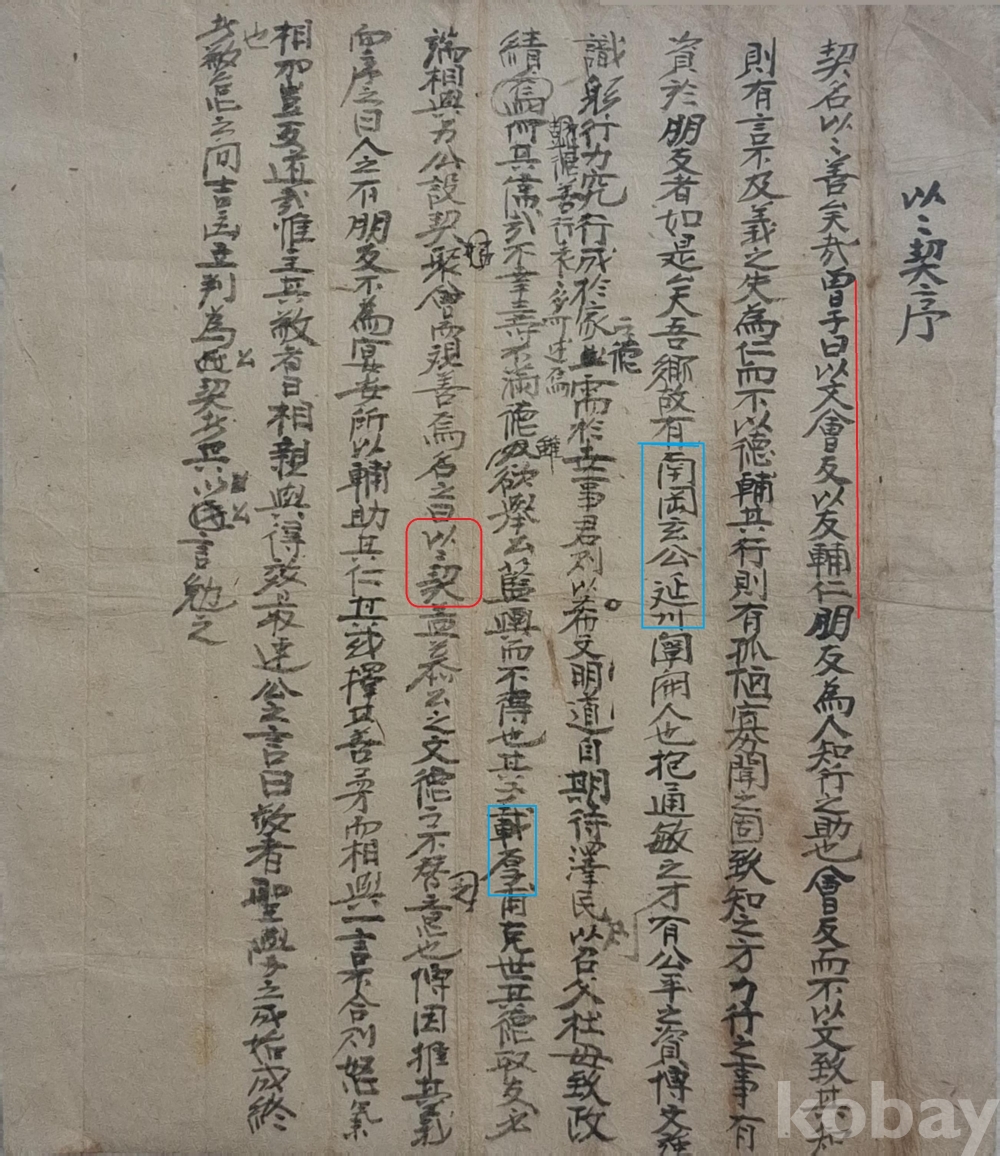 以〻契序
契名以〻善矣哉曾子曰以文會友以友輔仁朋友為人知行之助也會友而不以文致其知
則有言不及義之失為仁而不以德輔其行則有孤陋寡聞之固致知之方力行之事有
資於朋友者如是矣吾鄉故有南岡玄公延川闡開人也抱通敏之才有公平之資博文強
識躬行力究行成於家 需於世事君則以希文明道自期待澤民以召父杜母致政
之德
績為 其儒 不幸壽不滿德 欲舉 藍輿而不得也其子載厚甫克世其德取友必
鮮
端相與為公設契聚會而觀善焉名之曰以〻契盖慕公之文德 不替 意也傳因推其義
而序之曰人之有朋友不為宴安所以輔助其仁其或擇其善柔而相與一言不合則怒氣
相加豈友道哉惟主其敬者日相親與得效最速公之言曰敬者聖學之成始成終
也
於敬怠之間吉凶立判為 契者其以 言勉之
kobay